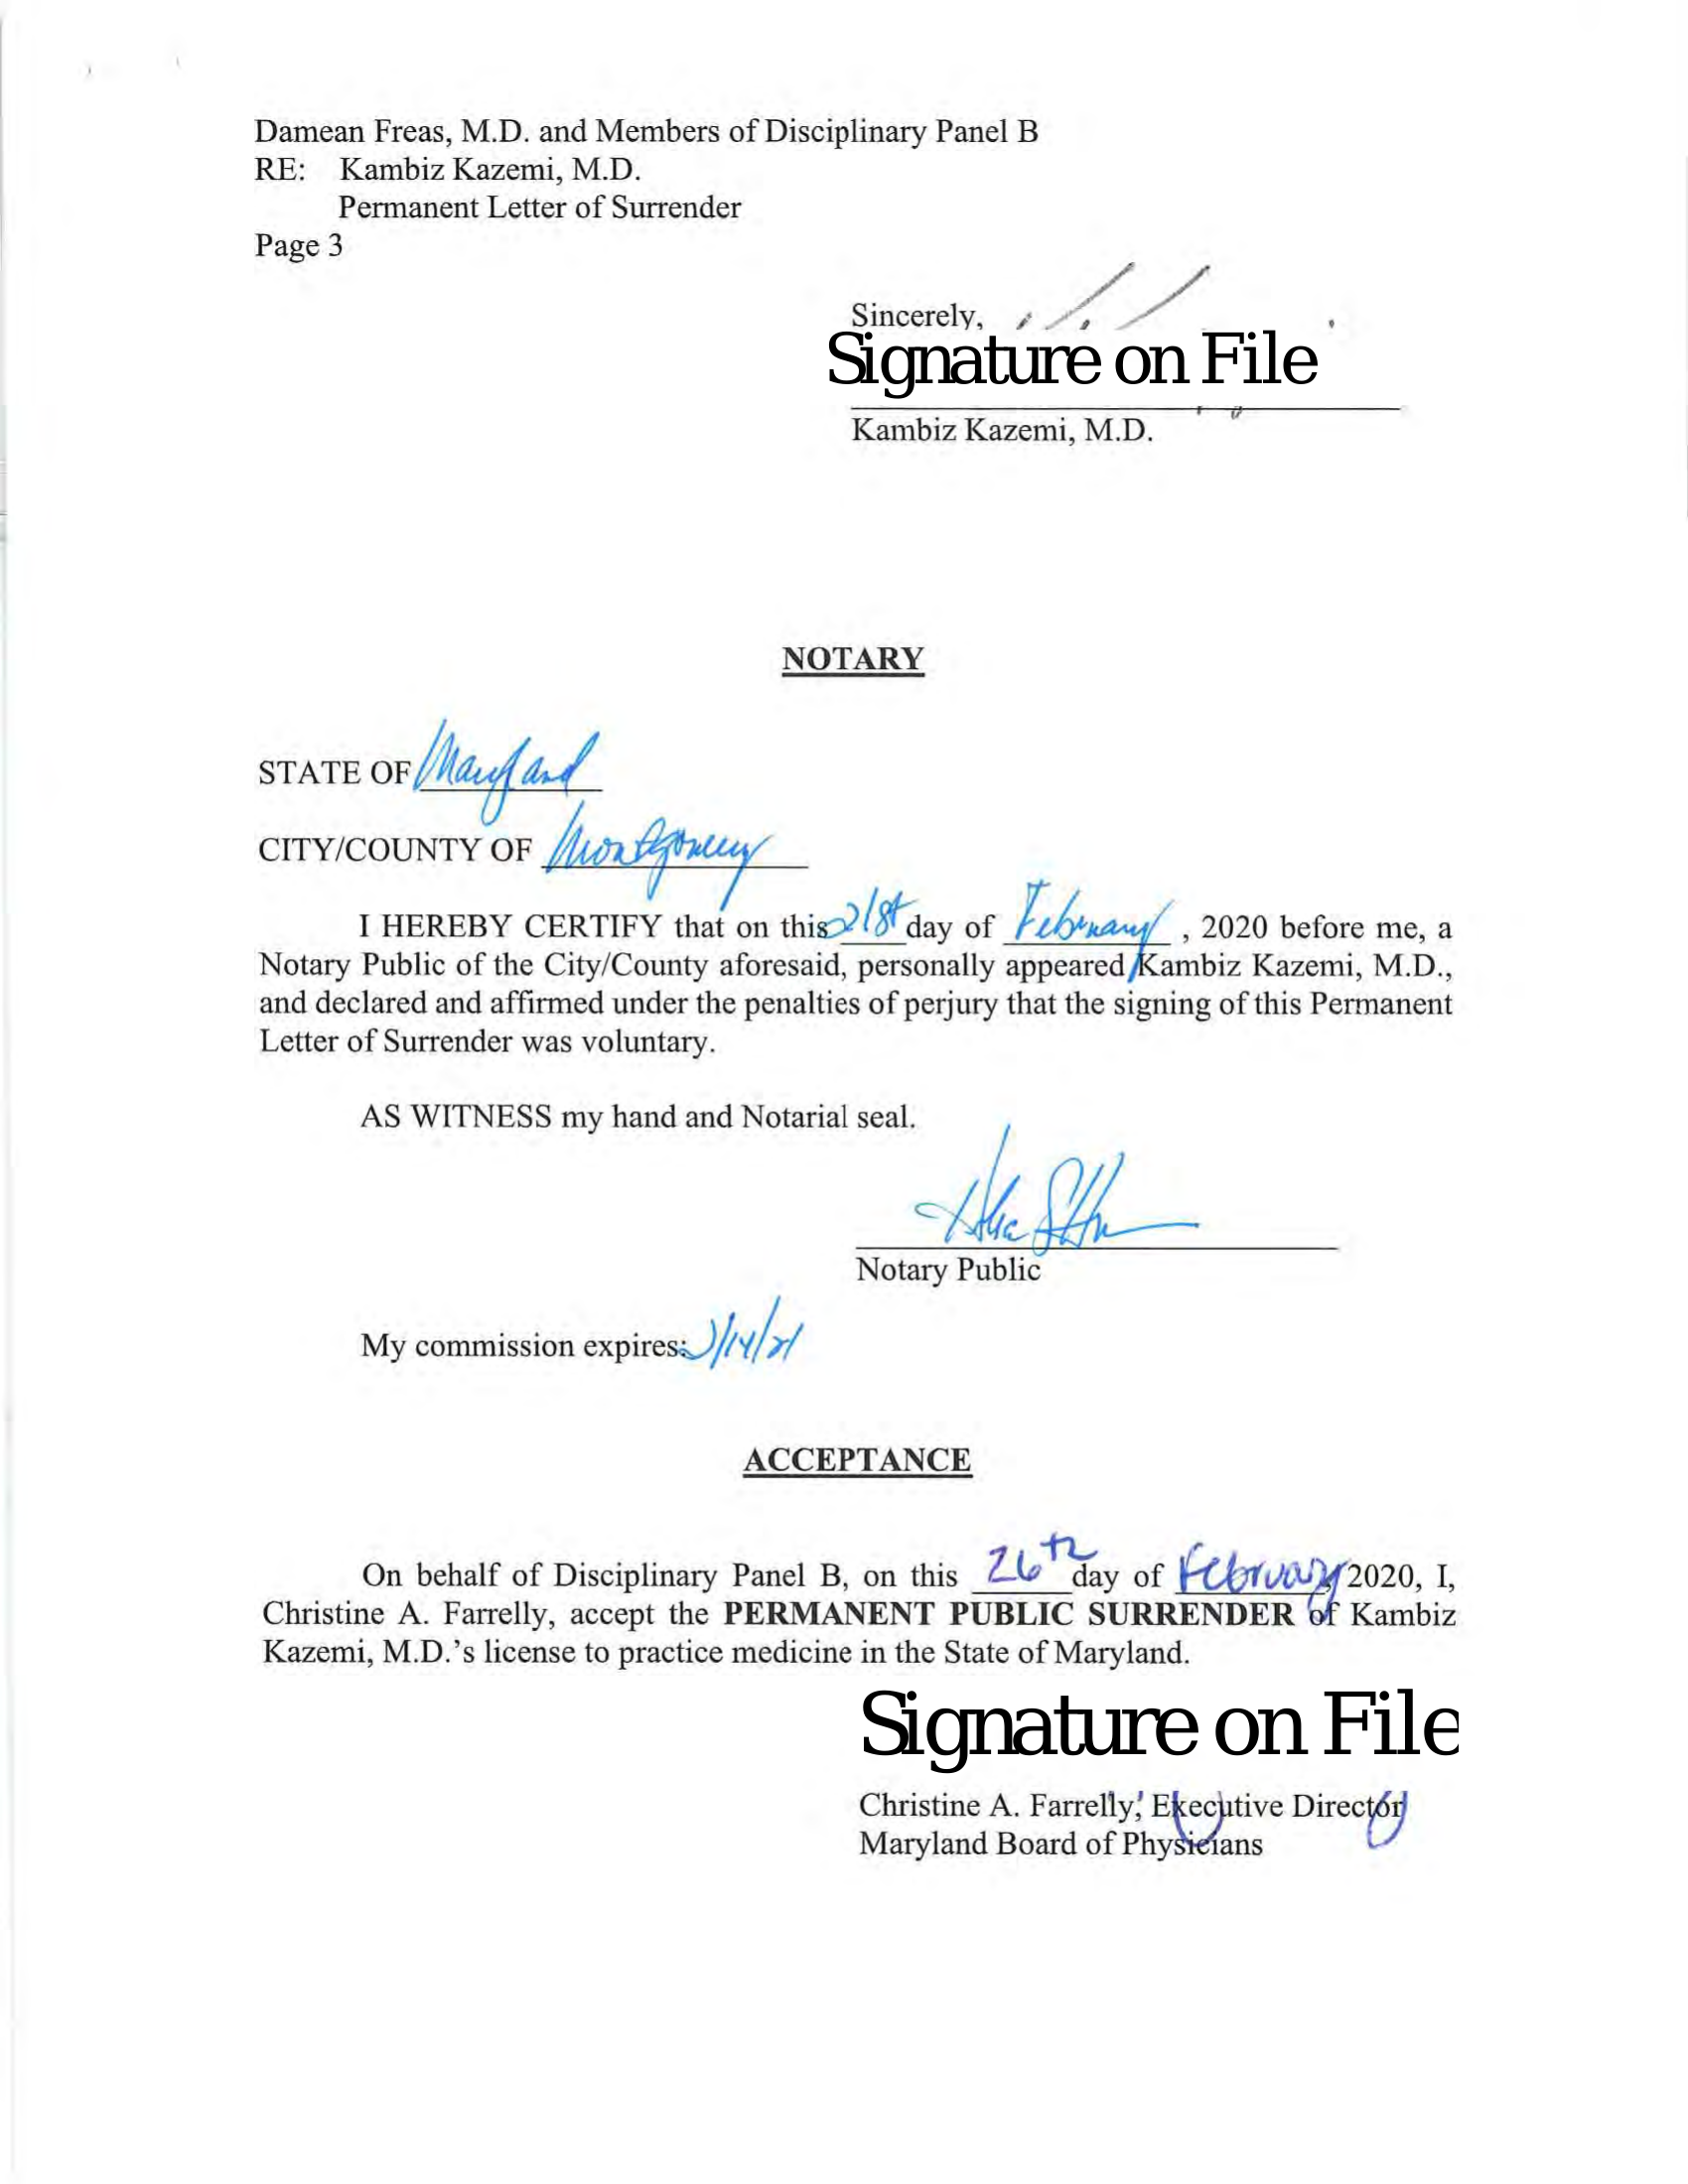 Damean Freas, M.D. and Members of Disciplinary Panel B
RE: Kambiz Kazemi, M.D.
Permanent Letter of Surrender
Page 3
Sincerely,
Signature on File
Kambiz Kazemi, M.D.
NOTARY
STATE OF Maryland
CITY/COUNTY OF Montgomery
I HEREBY CERTIFY that on this 21st day of February, 2020 before me, a
Notary Public of the City/County aforesaid, personally appeared Kambiz Kazemi, M.D.,
and declared and affirmed under the penalties of perjury that the signing of this Permanent
Letter of Surrender was voluntary.
AS WITNESS my hand and Notarial seal.
Notary Public
My commission expires:
ACCEPTANCE
On behalf of Disciplinary Panel B, on this 26th day of February, 2020, I,
Christine A. Farrelly, accept the PERMANENT PUBLIC SURRENDER of Kambiz
Kazemi, M.D.'s license to practice medicine in the State of Maryland.
Signature on File
Christine A. Farrelly, Executive Director
Maryland Board of Physicians